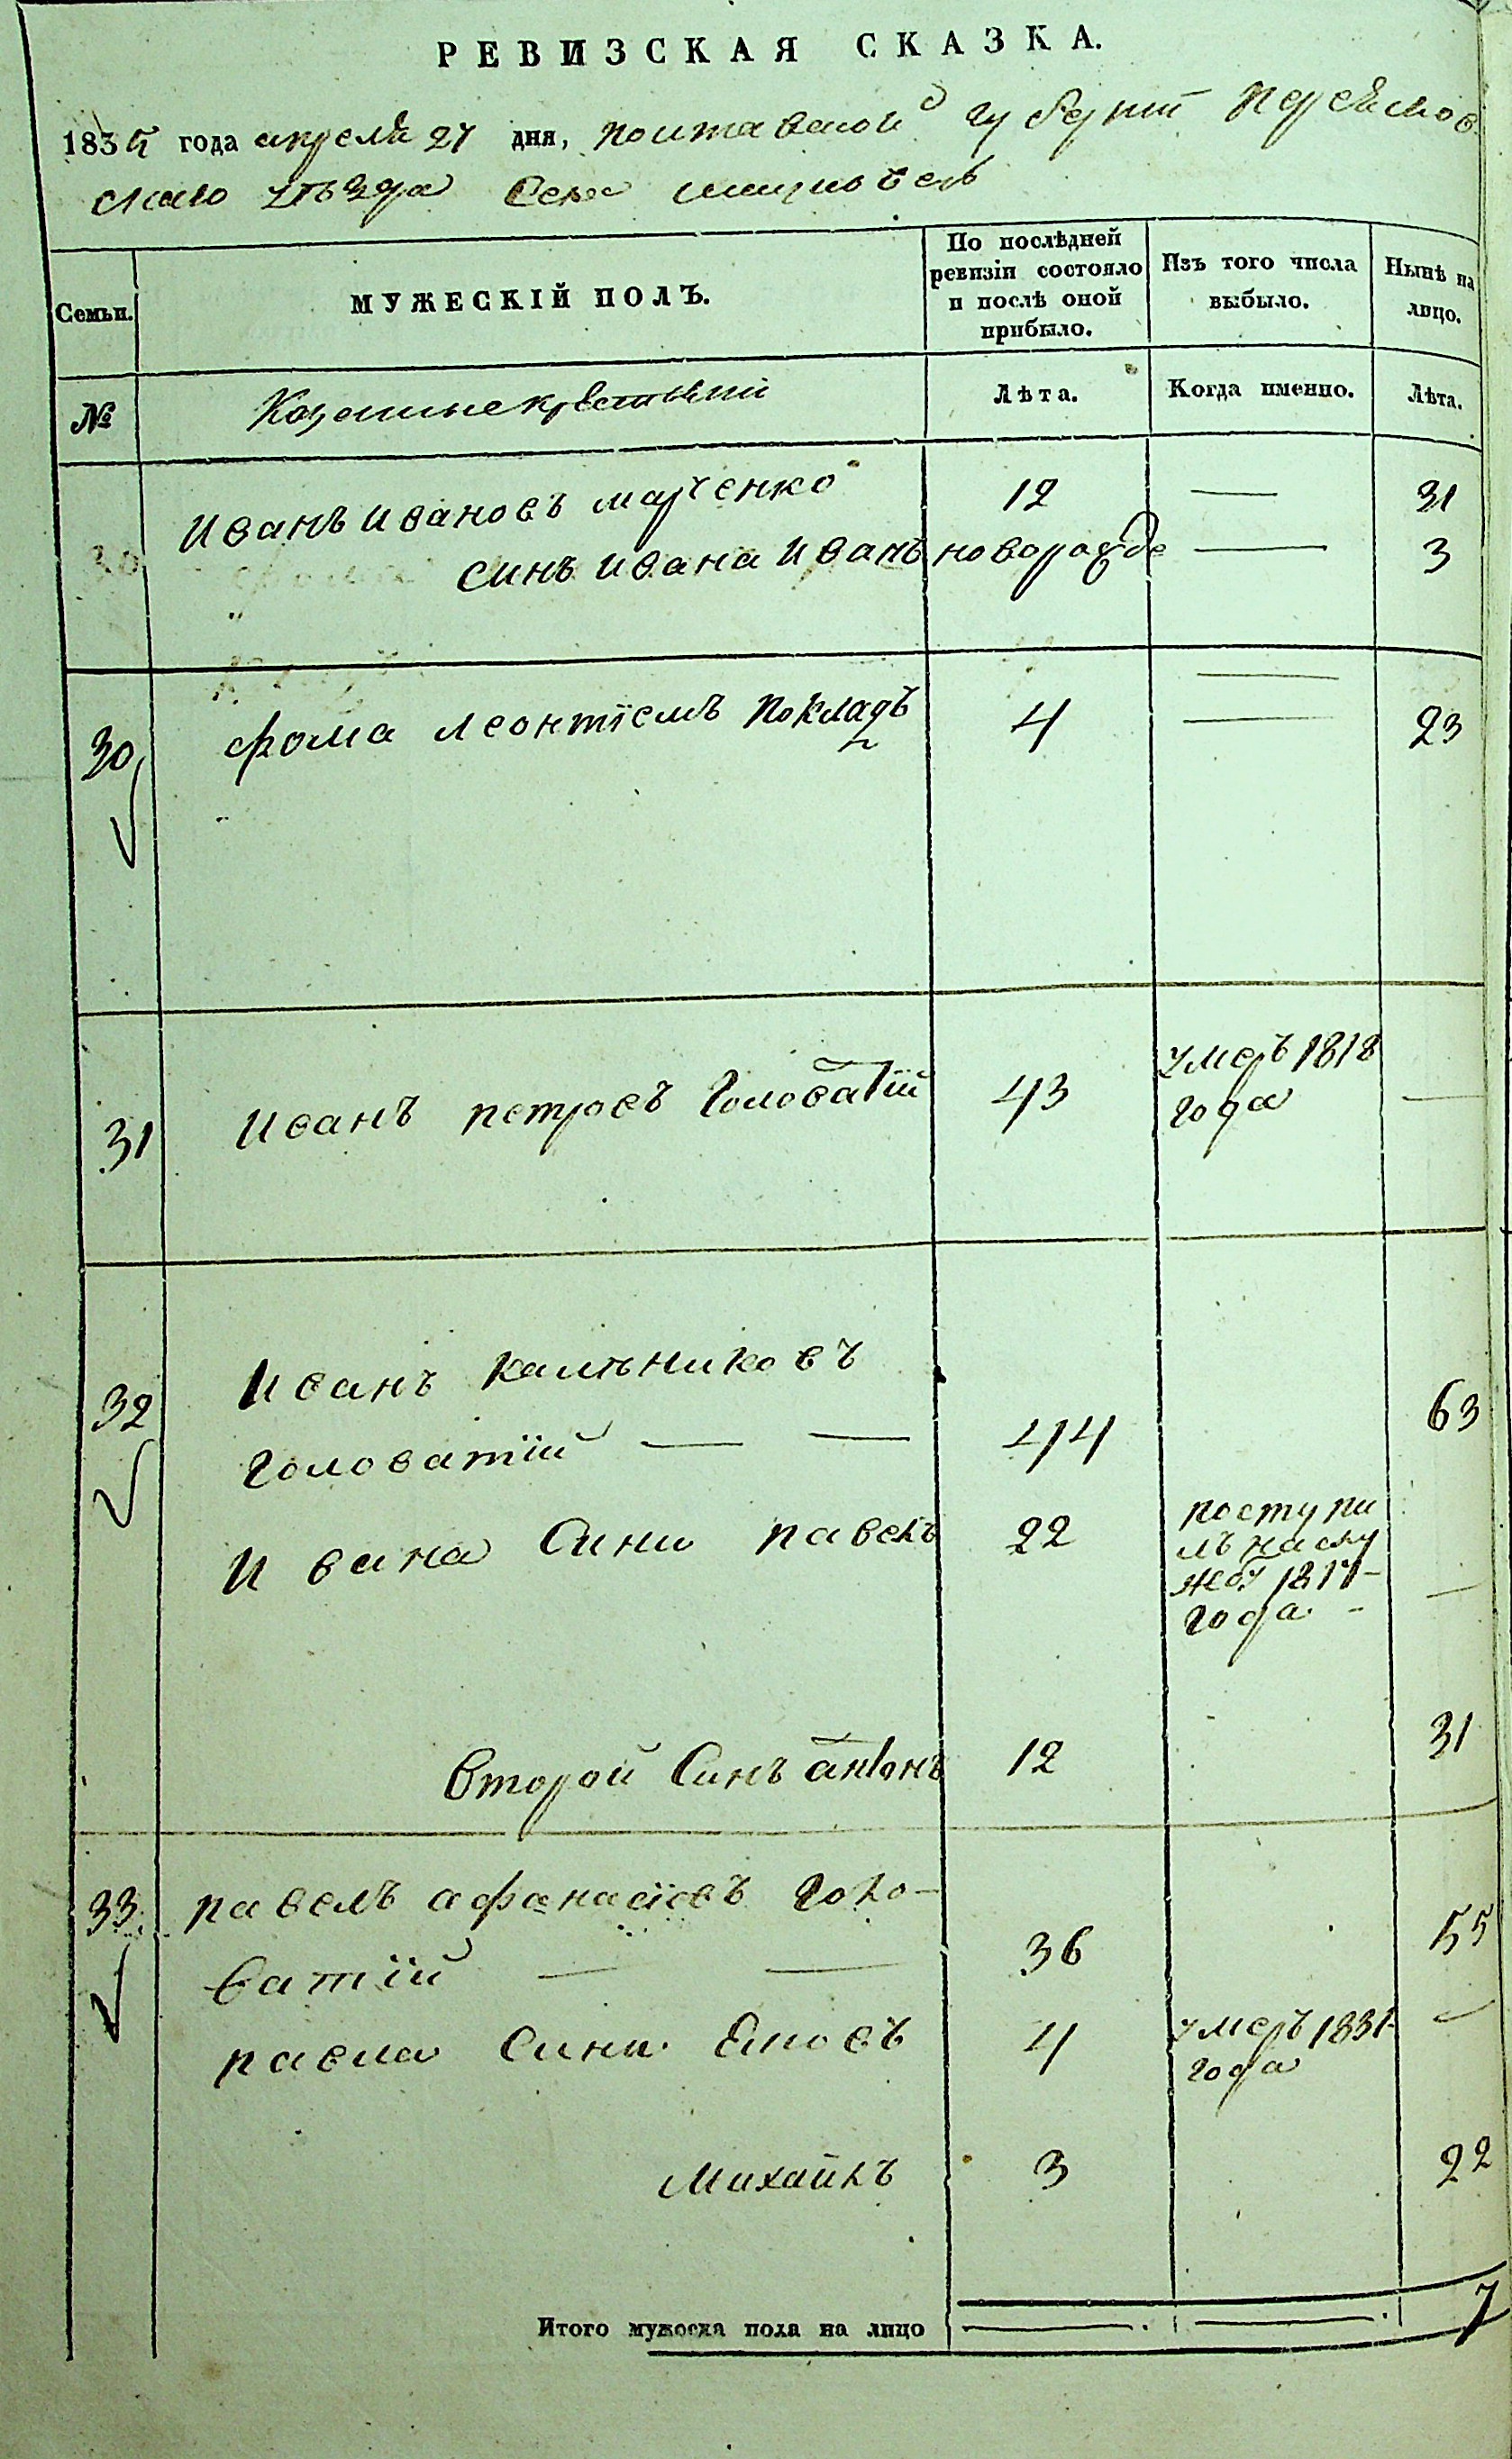 РЕВИЗСКАЯ СКАЗКА.
1835 года апреля 27 дня, полтавской губернїи переяслов
скаго уѣзда Села
Семьи.
МУЖЕСКІЙ ПОЛЪ.
По послѣдней ревизіи состояло и послѣ оной прибыло.
Изъ того числа выбыло.
Нынѣ на лицо.
№
Лѣта.
Когда именно.
Лѣта.
Иванъ Ивановъ марченко 12 — 31
30 синъ ивана Иванъ новорожде — 3
30 фома леонтїевъ покладъ 4 — 23
31 Иванъ петровъ Головатїй 43 умеръ 1818 —
года
32 Иванъ калѣниковъ
головатїй — — 44 63
Ивана Сини павелъ 22 поступи
лъ наслу
жбу 1817 —
года
Второй Синъ антонъ 12 31
33 павелъ афанасїевъ Голо-
ватїй — — 36 55
павла Сини 4 умеръ 1831 —
года
Михайлъ 3 22
Итого мужеска пола на лицо — — 7